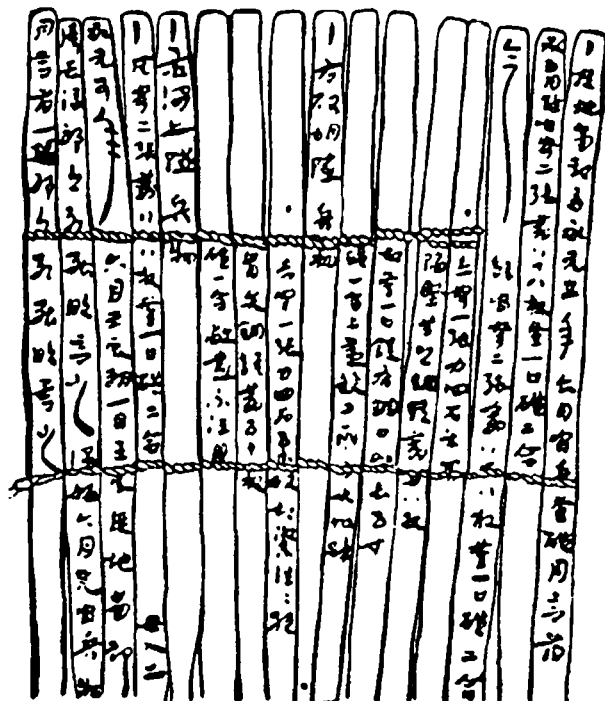 ●廣地南部言永元五年六月官兵釜磑月言簿
承五月餘官弩二張箭八十八枚釜一口磑二合
今餘官弩二張箭八十八枚釜一口磑二合
●赤弩一張力四石木關
陷堅羊頭銅鍭箭卅八枚
故釜一口鍉有錮口呼長五寸
磑一合上蓋缺二所各大如疎
●右破胡隧兵物
●赤弩一張力四石五木破起繳往往絕
盲矢銅鍭箭五十枚
磑一合敝盡不任用
●右澗上隧兵物
●凡弩二張箭八十八枚釜一口磑二合 毋入出
永元五年六月壬辰朔一日壬辰廣地南部
候長信叩頭死罪敢言之謹移六月見官兵物
月言簿一編叩頭死罪敢言之